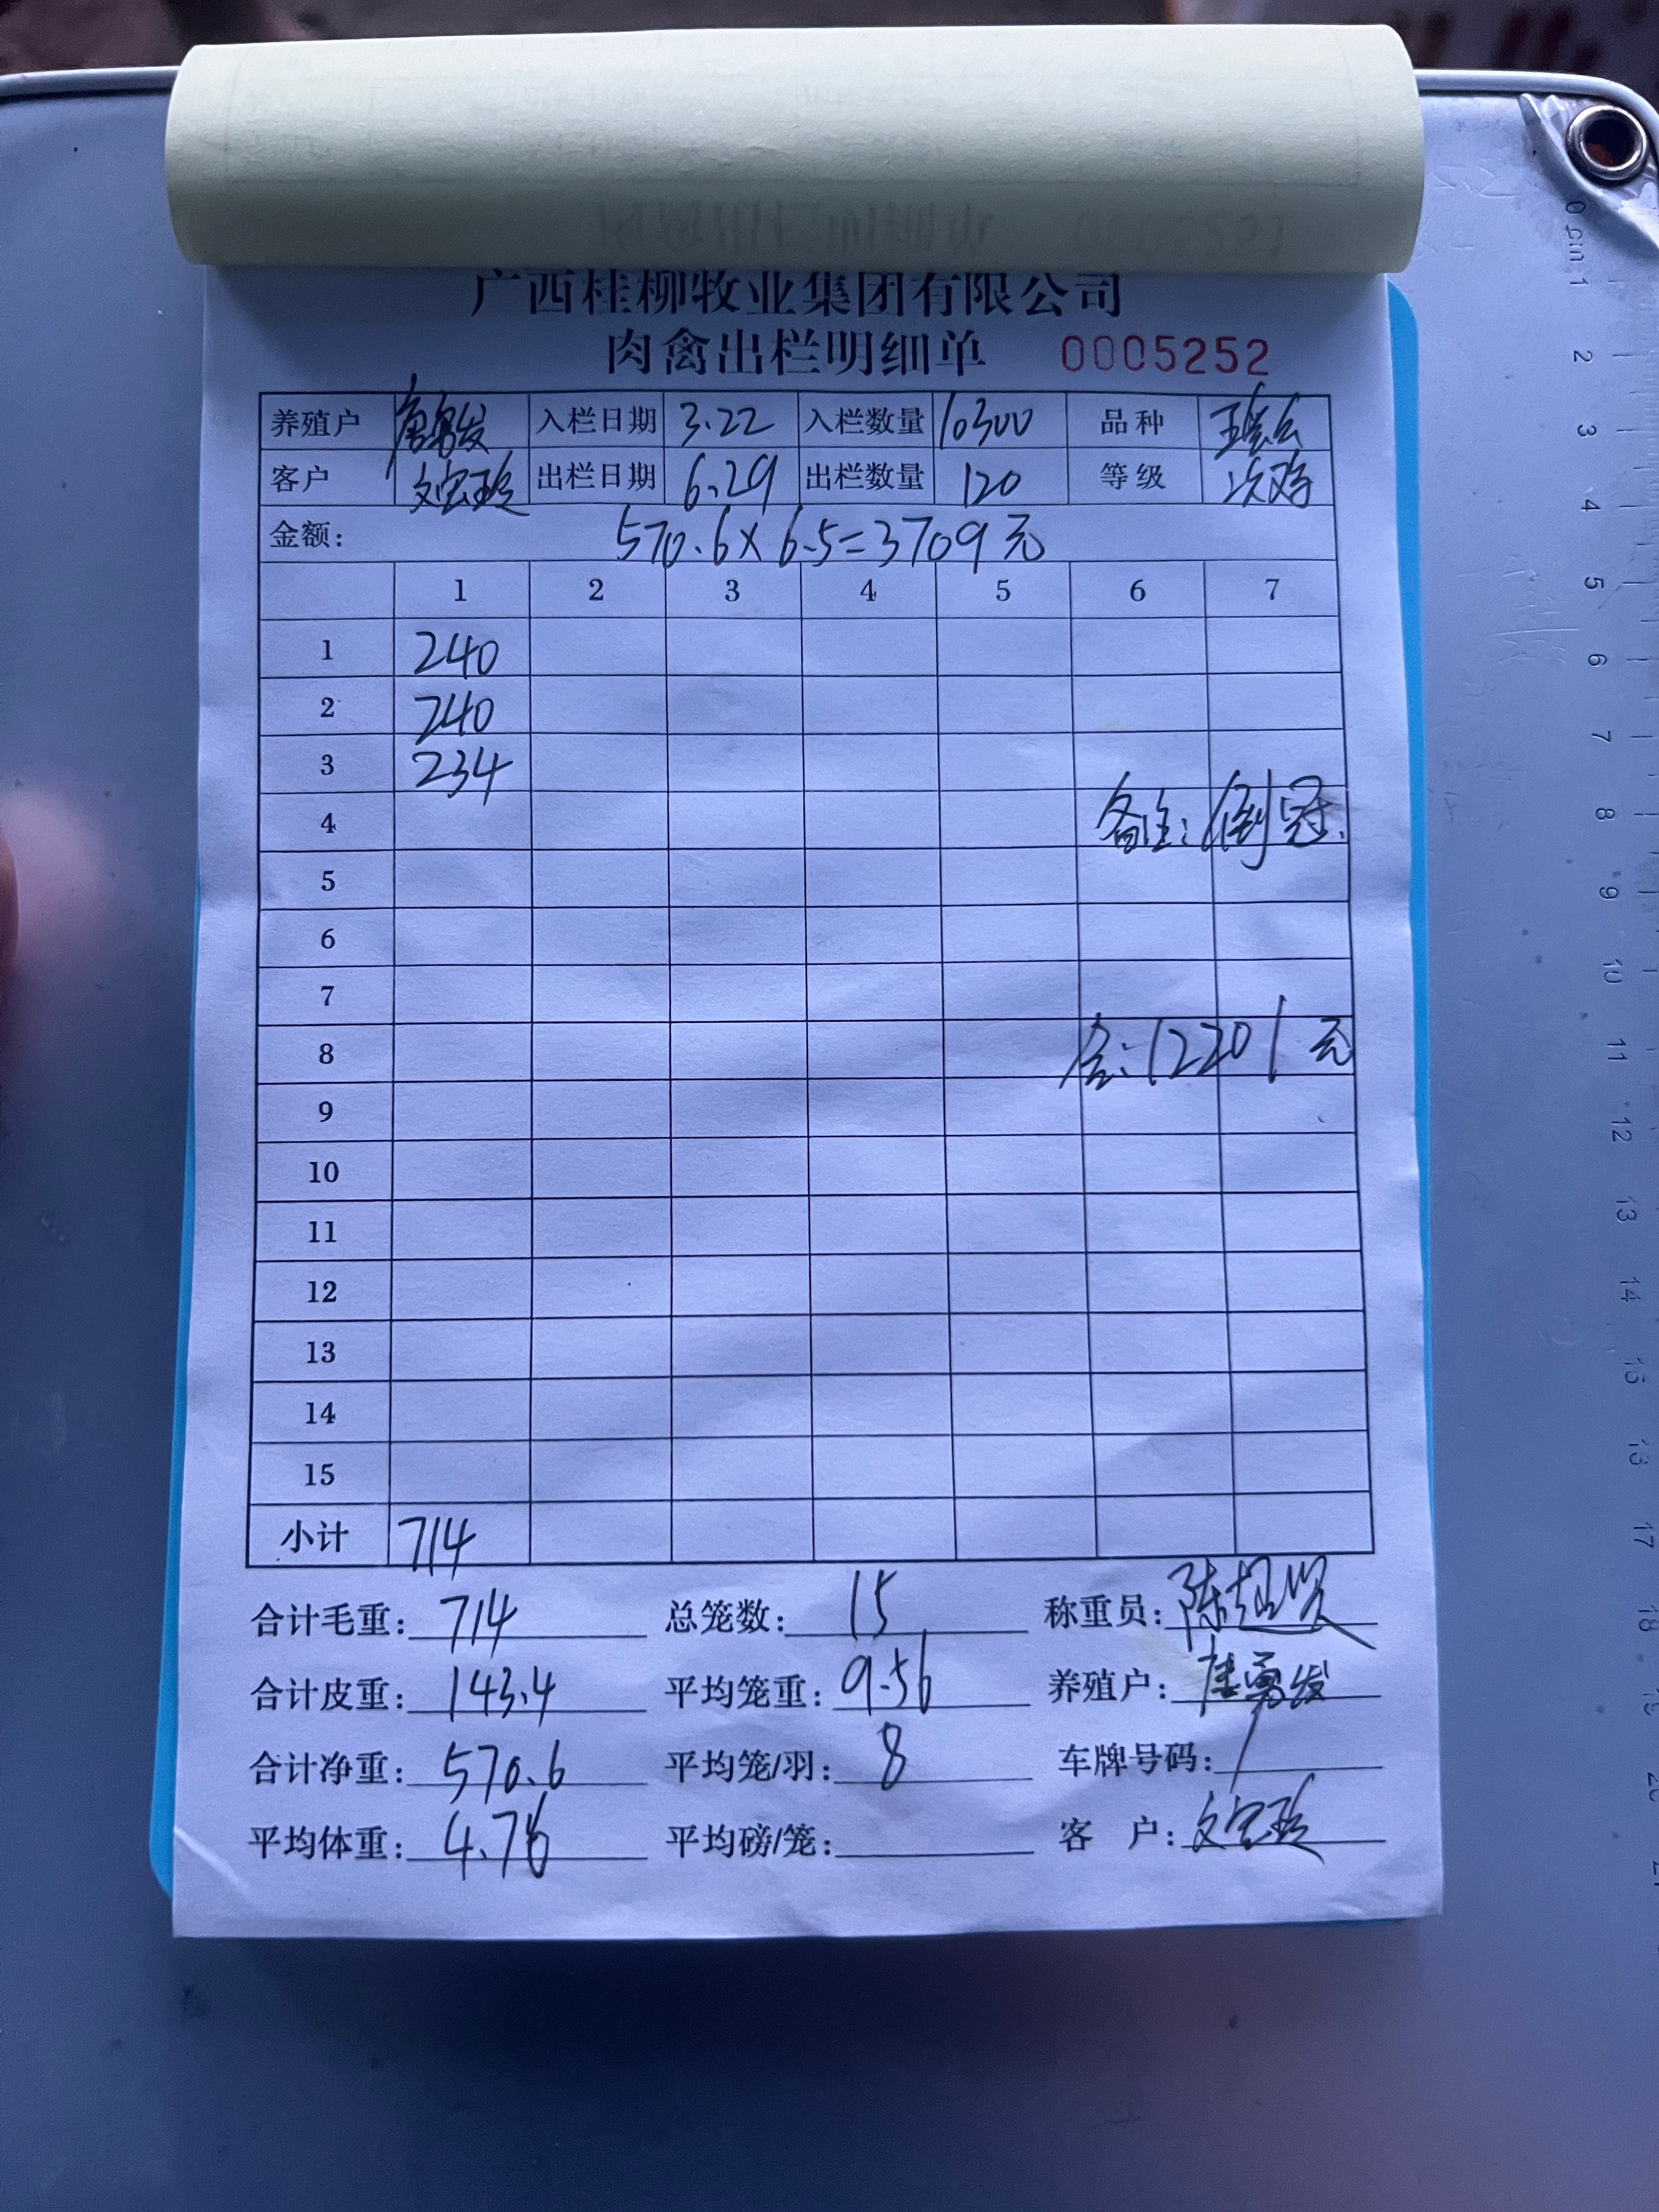 广西桂柳牧业集团有限公司
肉禽出栏明细单 0005252
养殖户 唐勇发 入栏日期 3.22 入栏数量 10300 品种
客户 文宏珍 出栏日期 6.29 出栏数量 120 等级 次鸡
金额: 570.6×6.5=3709元
1 2 3 4 5 6 7
1 240
2 240
3 234
4 备注:倒冠.
5
6
7
8 合:12201元
9
10
11
12
13
14
15
小计 714
合计毛重: 714 总笼数: 15 称重员: 陈
合计皮重: 143.4 平均笼重: 9.56 养殖户: 唐勇发
合计净重: 570.6 平均笼/羽: 8 车牌号码: /
平均体重: 4.76 平均磅/笼: 客 户: 文宏珍
0 cm 1
2
3
4
5
6
7
8
9
10
11
12
13
14
15
17
18